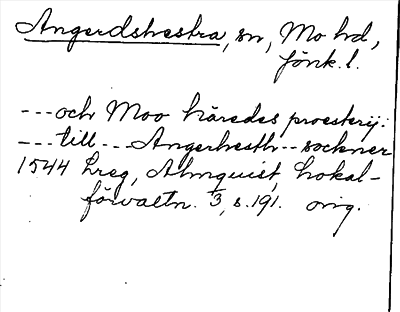 Angerdshestra, sn, Mo hd,
Jönk. l.
---och Moo häredes proesterij:
---till---Angerhesth--sockner
1544 Lreg, Almquist, Lokal-
förvaltn. 3, s. 191. orig.